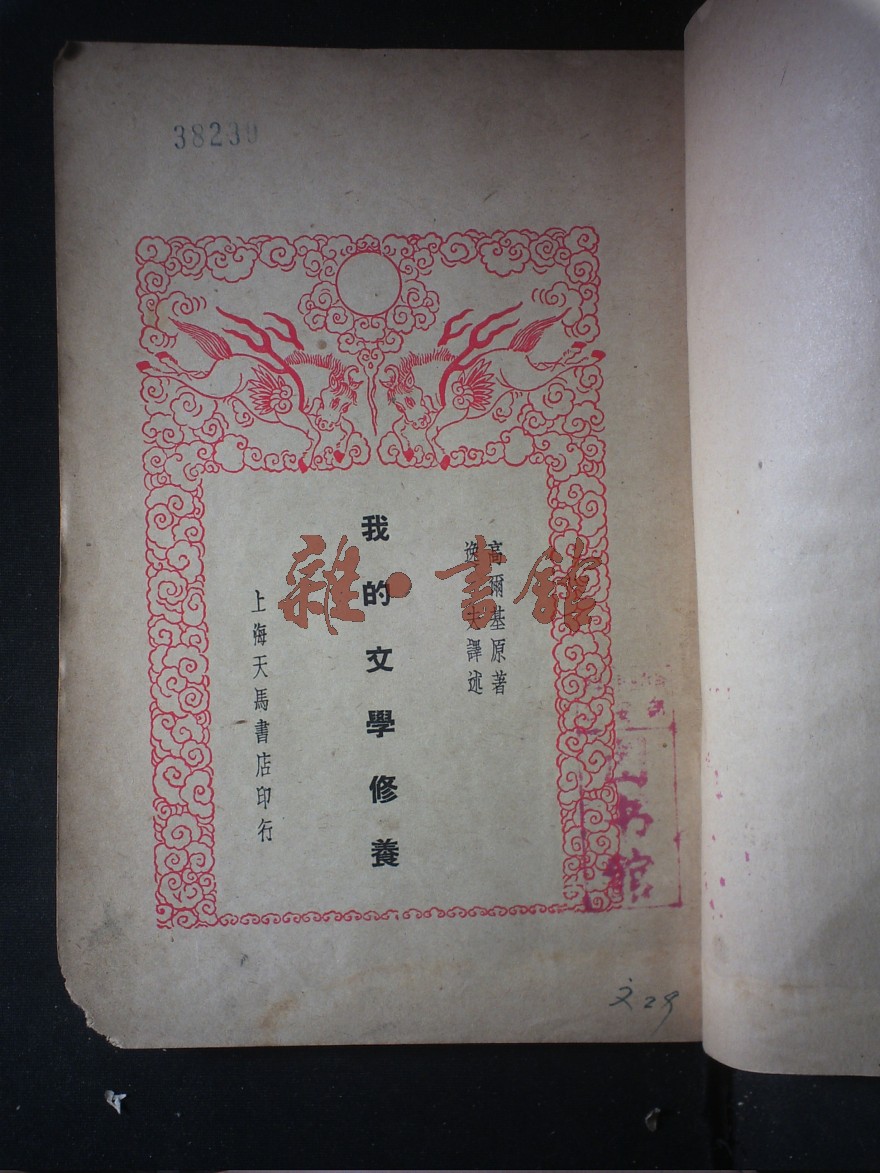 38230
高爾基原著
逸夫譯述
我的文學修養
上海天馬書店印行
雜·書館
书馆
文29